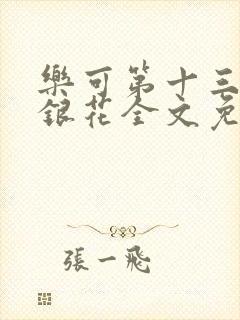 樂可第十三
銀花全文免
張一飛